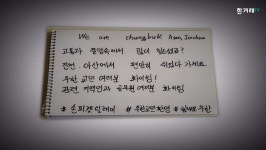 한겨레TV
We are chungbuk Asan, Jincheon
고통과 절망속에서 많이 힘드셨죠?
진천·아산에서 편안히 쉬었다 가세요.
우한 교민 여러분 화이팅!
관련 지역민과 공무원 여러분 화이팅
#손피켓릴레이 #우한교민환영 우한